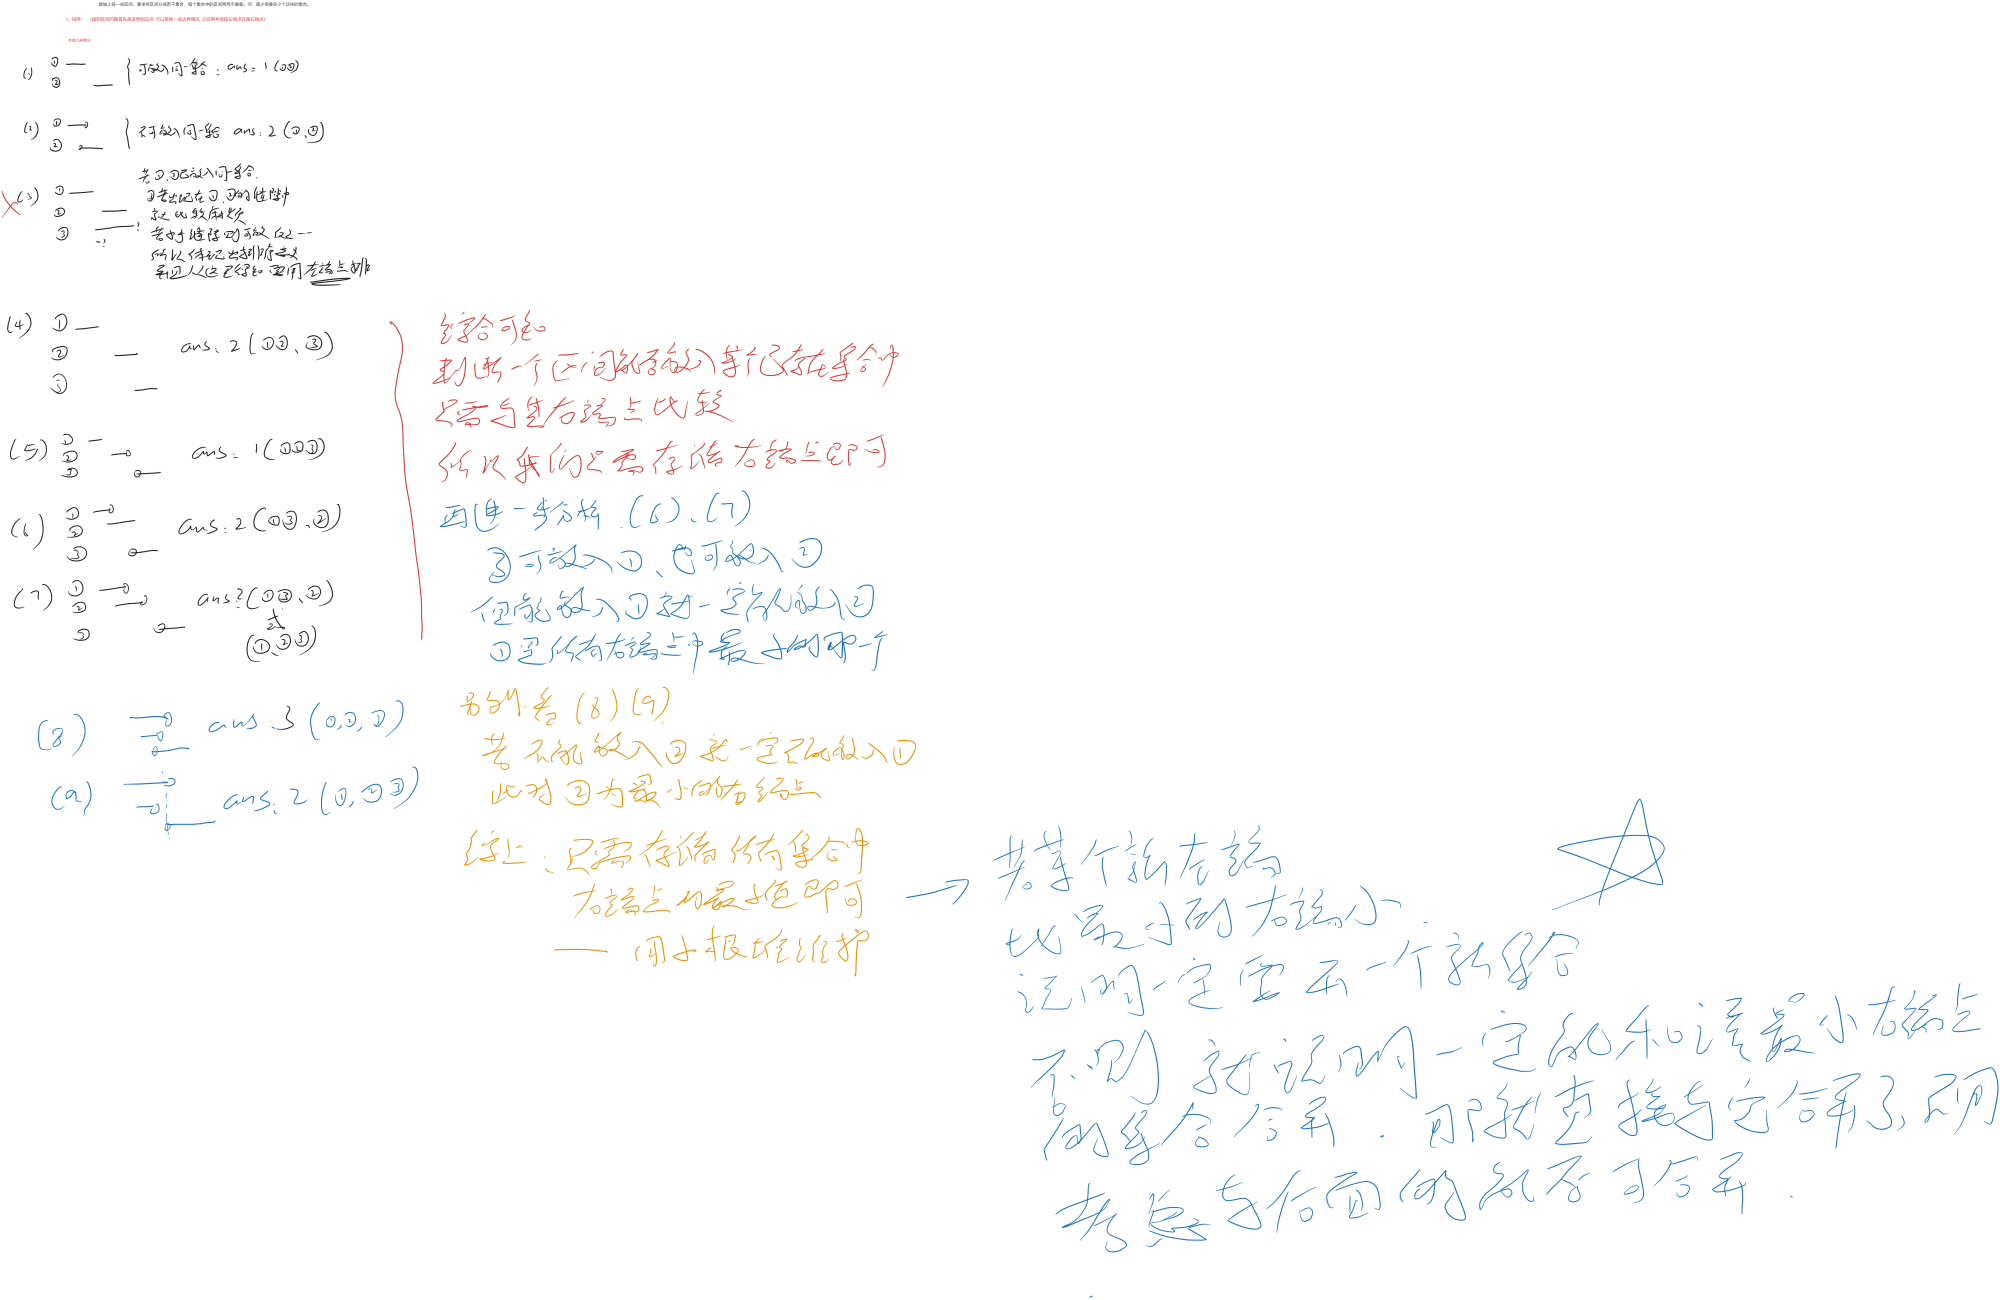 数轴上有一些区间,要求将区间分成若干集合,每个集合中的区间两两不重叠。问:最少需要多少个这样的集合。
1、排序:
考虑几种情况
(1) ① ② 可放入同一集合: ans: 1 (①②)
(2) ① ② 不可放入同一集合 ans: 2 (①、②)
(3) ① ② ③
若①、②已放入同一集合.
③若出现在①、②的缝隙中
就比较麻烦
所以体现出排序意义
要用左端点排
(4) ① ② ③ ans: 2 (①②、③)
(5) ① ② ③ ans: 1 (①②③)
(6) ① ② ③ ans: 2 (①③、②)
(7) ① ② ③ ans: 2 (①③、②)
或
(①、②③)
综合可知
判断一个区间能否放入某个已存在集合中
只需与其右端点比较
所以我们只需存储右端点即可
再进一步分析 (6)、(7)
③可放入①、也可放入②
但能放入①就一定能放入②
①是所有右端点中最小的那一个
(8) ans: 3 (①,②,③)
(9) ans: 2 (①, ②③)
另外.看 (8) (9)
若不能放入②就一定不能放入①
此时②为最小的右端点
综上: 只需存储所有集合中
右端点的最小值即可
—— 用小根堆维护
若某个新左端
比最小的右端小.
说明一定要开一个新集合
否则 就说明一定能和该最小右端点
的集合合并. 那就直接与它合并了,再
考虑与后面的能否可合并.